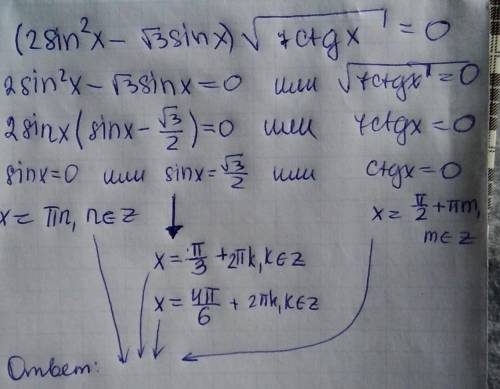 (2sin²x − √3sinx)√7ctgx = 0
2sin²x − √3sinx = 0 или √7ctgx = 0
2sinx(sinx − √3/2) = 0 или 7ctgx = 0
sinx = 0 или sinx = √3/2 или ctgx = 0
x = πn, n∈z
x = π/2 + πm,
m∈z
x = π/3 + 2πk, k∈z
x = 4π/6 + 2πk, k∈z
Ответ: